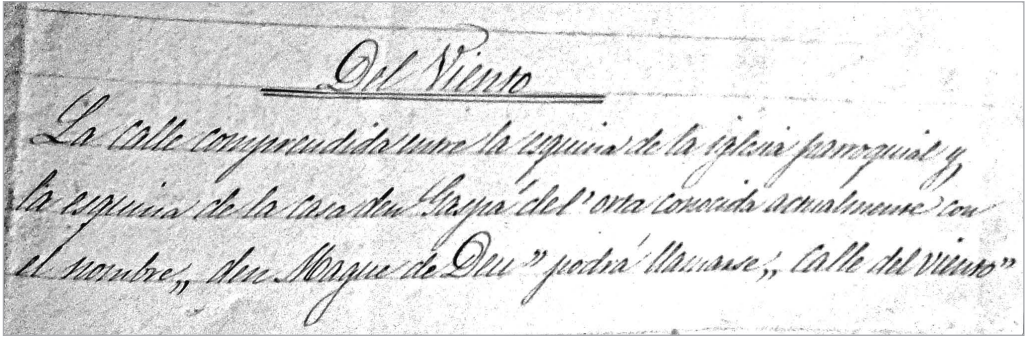 Del Viento
La calle comprendida entre la esquina de la iglesia parroquial y
la esquina de la casa den Gaspá del' orta conocida actualmente con
el nombre „ den Mague de Deu” podrá llamarse „ Calle del viento”